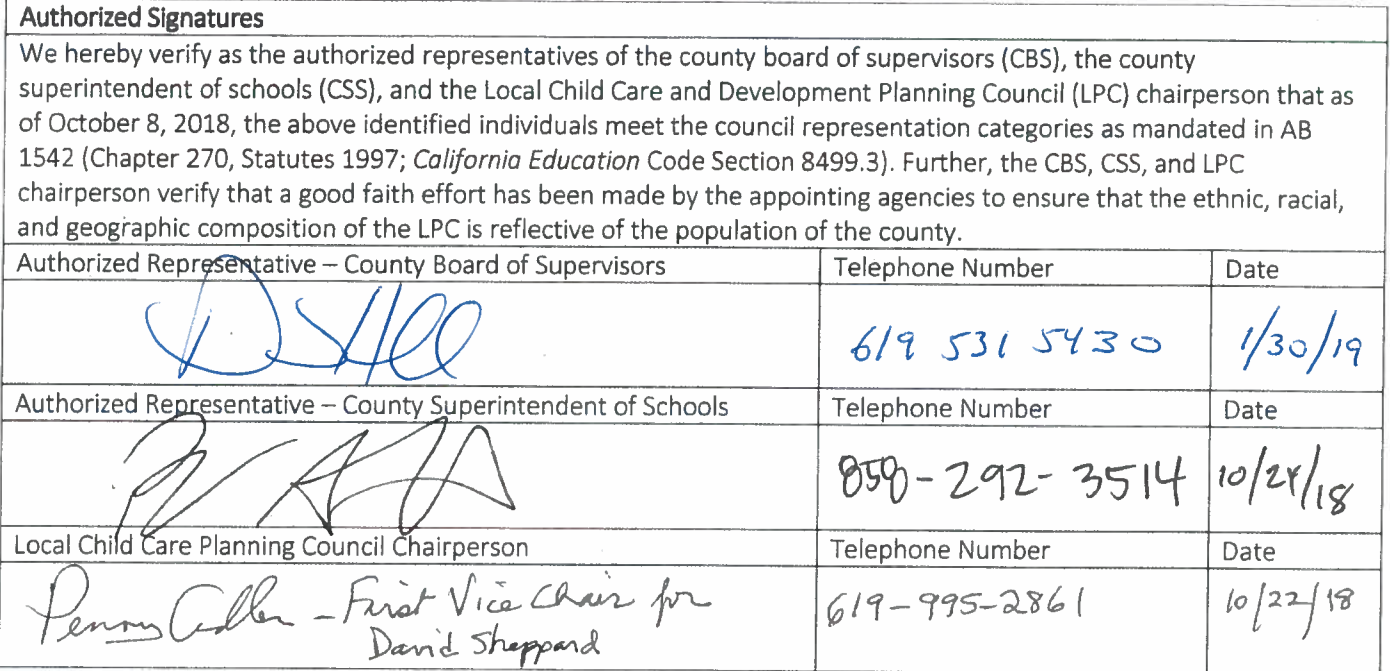 Authorized Signatures
We hereby verify as the authorized representatives of the county board of supervisors (CBS), the county
superintendent of schools (CSS), and the Local Child Care and Development Planning Council (LPC) chairperson that as
of October 8, 2018, the above identified individuals meet the council representation categories as mandated in AB
1542 (Chapter 270, Statutes 1997; California Education Code Section 8499.3). Further, the CBS, CSS, and LPC
chairperson verify that a good faith effort has been made by the appointing agencies to ensure that the ethnic, racial,
and geographic composition of the LPC is reflective of the population of the county.
Authorized Representative – County Board of Supervisors Telephone Number Date
619 531 5430 1/30/19
Authorized Representative – County Superintendent of Schools Telephone Number Date
858-292-3514 10/24/18
Local Child Care Planning Council Chairperson Telephone Number Date
Penny - First Vice Chair for 619-995-2861 10/22/18
David Sheppard